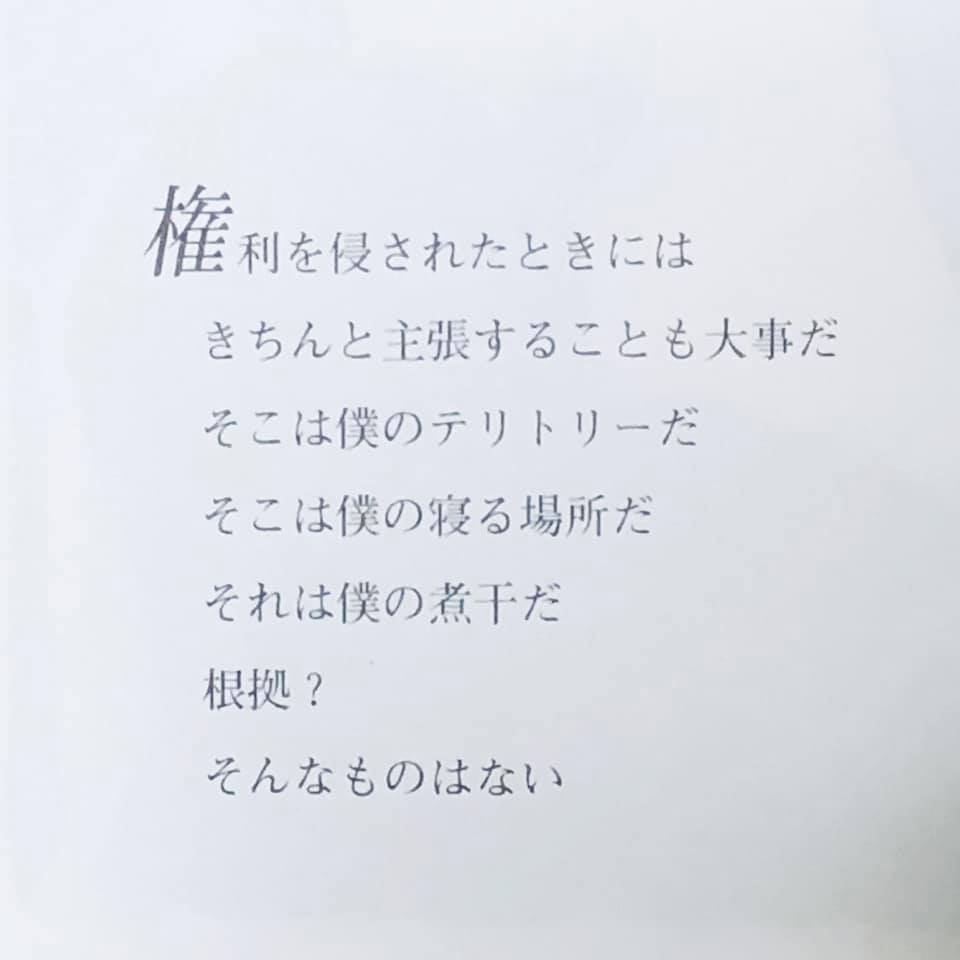 権利を侵されたときには
きちんと主張することも大事だ
そこは僕のテリトリーだ
そこは僕の寝る場所だ
それは僕の煮干だ
根拠?
そんなものはない